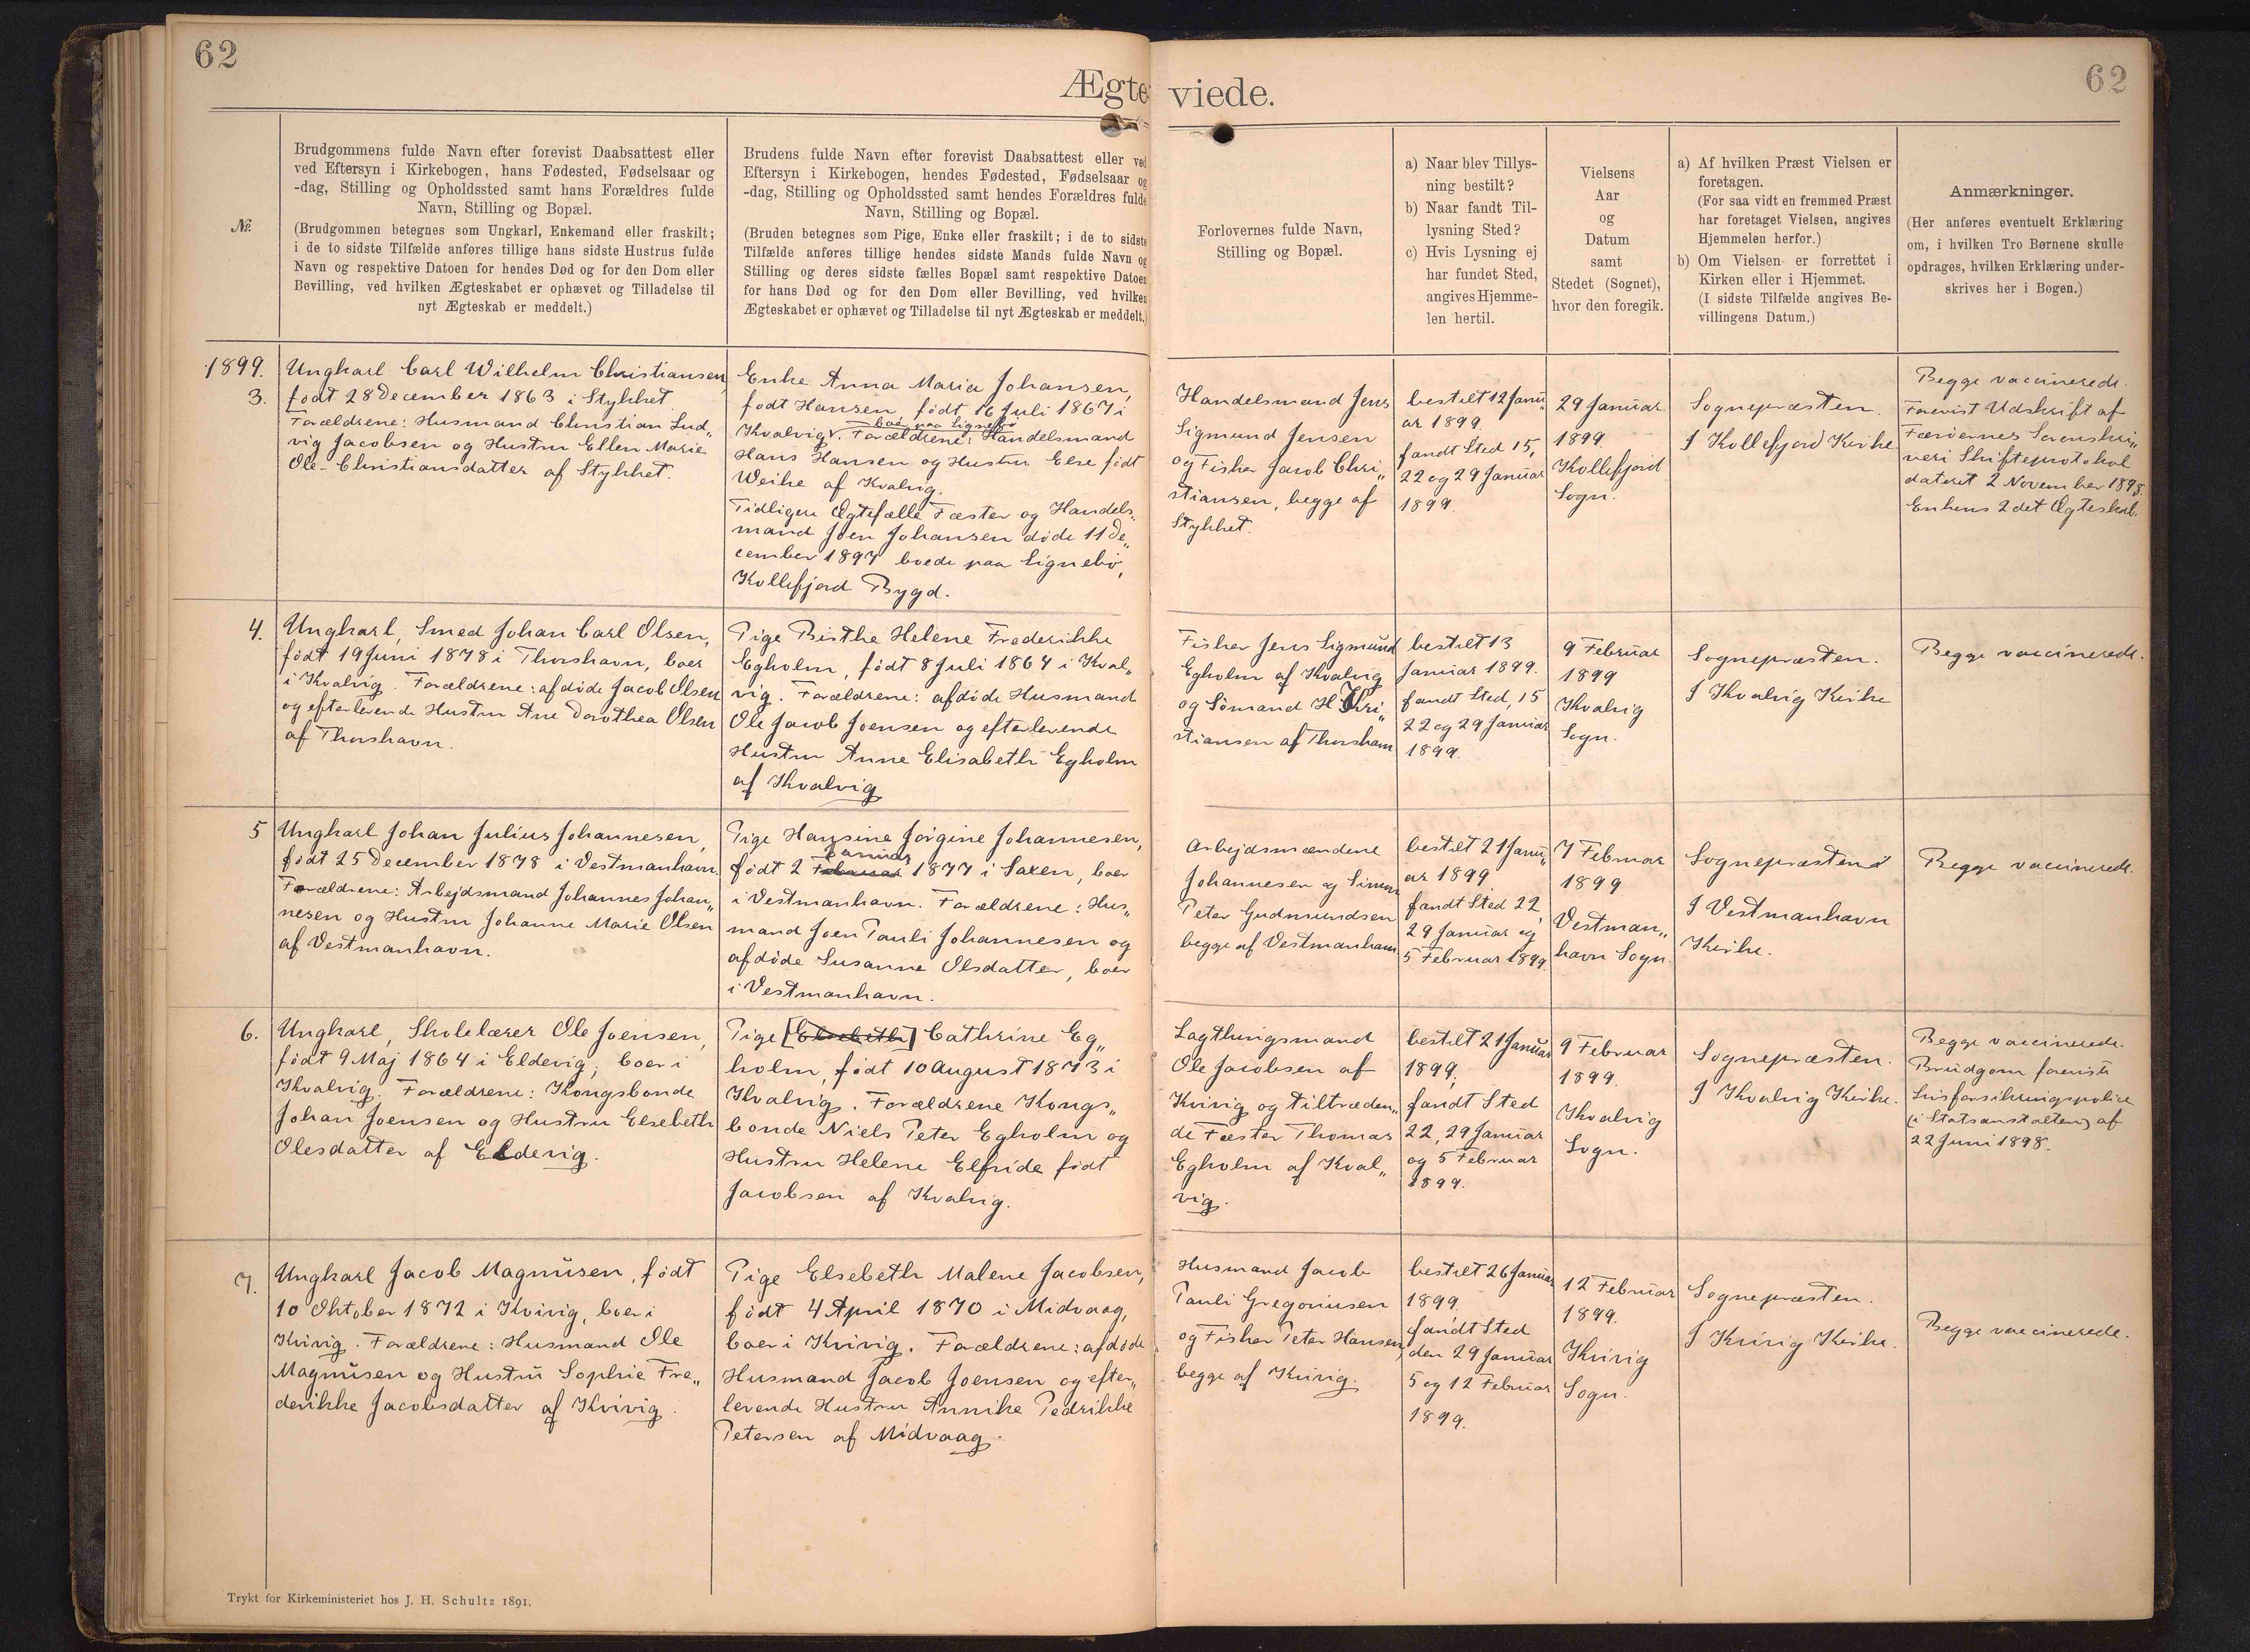 62
Ægte
viede.
62
№
Brudgommens fulde Navn efter forevist Daabsattest eller
ved Eftersyn i Kirkebogen, hans Fødested, Fødselsaar og
-dag, Stilling og Opholdssted samt hans Forældres fulde
Navn, Stilling og Bopæl.
(Brudgommen betegnes som Ungkarl, Enkemand eller fraskilt;
i de to sidste Tilfælde anføres tillige hans sidste Hustrus fulde
Navn og respektive Datoen for hendes Død og for den Dom eller
Bevilling, ved hvilken Ægteskabet er ophævet og Tilladelse til
nyt Ægteskab er meddelt.)
Brudens fulde Navn efter forevist Daabsattest eller ved
Eftersyn i Kirkebogen, hendes Fødested, Fødselsaar og
-dag, Stilling og Opholdssted samt hendes Forældres fulde
Navn, Stilling og Bopæl.
(Bruden betegnes som Pige, Enke eller fraskilt; i de to sidste
Tilfælde anføres tillige hendes sidste Mands fulde Navn og
Stilling og deres sidste fælles Bopæl samt respektive Datoen
for hans Død og for den Dom eller Bevilling, ved hvilken
Ægteskabet er ophævet og Tilladelse til nyt Ægteskab er meddelt.)
Forlovernes fulde Navn,
Stilling og Bopæl.
a) Naar blev Tillys-
ning bestilt?
b) Naar fandt Til-
lysning Sted?
c) Hvis Lysning ej
har fundet Sted,
angives Hjemme-
len hertil.
Vielsens
Aar
og
Datum
samt
Stedet (Sognet),
hvor den foregik.
a) Af hvilken Præst Vielsen er
foretagen.
(For saa vidt en fremmed Præst
har foretaget Vielsen, angives
Hjemmelen herfor.)
b) Om Vielsen er forrettet i
Kirken eller i Hjemmet.
(I sidste Tilfælde angives Be-
villingens Datum.)
Anmærkninger.
(Her anføres eventuelt Erklæring
om, i hvilken Tro Børnene skulle
opdrages, hvilken Erklæring under-
skrives her i Bogen.)
1899.
3.
Ungkarl Carl Wilhelm Christiansen,
født 28 December 1863 i Stykket
Forældrene: Husmand Christian Lud„
vig Jacobsen og Hustru Ellen Marie
Ole-Christiansdatter af Stykket.
Enke Anna Maria Johansen,
født Hansen, født 16 Juli 1867 i
boer paa Lignebø
Kvalvig. Forældrene: Handelsmand
Hans Hansen og Hustru Else født
Weihe af Kvalvig.
Tidligere Ægtefælle Fæster og Handels„
mand Joen Johansen døde 11 De„
cember 1897 boede paa Lignebø,
Kollefjord Bygd.
Handelsmand Jens
Sigmund Jensen
og Fisker Jacob Chri„
stiansen, begge af
Stykket.
bestilt 12 Janu„
ar 1899.
fandt Sted 15,
22 og 29 Januar
1899.
29 Januar
1899.
Kollefjord
Sogn.
Sognepræsten.
I Kollefjord Kirke
Begge vaccinerede.
Forevist Udskrift af
Færøernes Sorenskri„
veri Skifteprotokol
dateret 2 November 1898.
Enkens 2det Ægteskab.
4.
Ungkarl, Smed Johan Carl Olsen,
født 19 Juni 1878 i Thorshavn, boer
i Kvalvig. Forældrene: afdøde Jacob Olsen
og efterlevende Hustru Ane Dorothea Olsen
af Thorshavn.
Pige Birthe Helene Frederikke
Egholm, født 8 Juli 1864 i Kval„
vig. Forældrene: afdøde Husmand
Ole Jacob Joensen og efterlevende
Hustru Anne Elisabeth Egholm
af Kvalvig
Fisker Jens Sigmund
Egholm af Kvalvig
og Sømand H Kri„
stiansen af Thorshavn
bestilt 13
Januar 1899.
fandt Sted, 15
22 og 29 Januar
1899.
9 Februar
1899
Kvalvig
Sogn.
Sognepræsten.
I Kvalvig Kirke
Begge vaccinerede.
5
Ungkarl Johan Julius Johannesen,
født 25 December 1878 i Vestmanhavn.
Forældrene: Arbejdsmand Johannes Johan„
nesen og Hustru Johanne Marie Olsen
af Vestmanhavn.
Pige Hansine Jørgine Johannesen,
Januar
født 2 Februar 1877 i Saxen, boer
i Vestmanhavn. Forældrene: Hus„
mand Joen Pauli Johannesen og
afdøde Susanne Olsdatter, boer
i Vestmanhavn.
Arbejdsmændene
Johannesen og Simon
Peter Gudmundsen
begge af Vestmanhavn.
bestilt 21 Janu„
ar 1899
fandt Sted 22,
29 Januar og
5 Februar 1899.
7 Februar
1899
Vestman„
havn Sogn.
Sognepræsten
I Vestmanhavn
Kirke.
Begge vaccinerede.
6.
Ungkarl, Skolelærer Ole Joensen,
født 9 Maj 1864 i Eldevig, boer i
Kvalvig. Forældrene: Kongsbonde
Johan Joensen og Hustru Elsebeth
Olesdatter af Eldevig.
Pige [Elsebeth] Cathrine Eg„
holm, født 10 August 1873 i
Kvalvig. Forældrene Kongs„
bonde Niels Peter Egholm og
Hustru Helene Elfride født
Jacobsen af Kvalvig.
Lagthingsmand
Ole Jacobsen af
Kvivig og tiltræden„
de Fæster Thomas
Egholm af Kval„
vig.
bestilt 21 Januar
1899,
fandt Sted
22, 29 Januar
og 5 Februar
1899.
9 Februar
1899.
Kvalvig
Sogn.
Sognepræsten.
I Kvalvig Kirke.
Begge vaccinerede.
Brudgom foreviste
Livsforsikringspolice
(i Statsanstalten) af
22 Juni 1898.
7.
Ungkarl Jacob Magnusen, født
10 Oktober 1872 i Kvivig, boer i
Kvivig. Forældrene: Husmand Ole
Magnusen og Hustru Sophie Fre„
derikke Jacobsdatter af Kvivig.
Pige Elsebeth Malene Jacobsen,
født 4 April 1870 i Midvaag,
boer i Kvivig. Forældrene: afdøde
Husmand Jacob Joensen og efter„
levende Hustru Annike Pedrikke
Petersen af Midvaag.
Husmand Jacob
Pauli Gregoriusen
og Fisker Peter Hansen,
begge af Kvivig.
bestilt 26 Januar
1899.
fandt Sted
den 29 Januar
5 og 12 Februar
1899.
12 Februar
1899.
Kvivig
Sogn.
Sognepræsten.
I Kvivig Kirke.
Begge vaccinerede.
Trykt for Kirkeministeriet hos J. H. Schultz 1891.